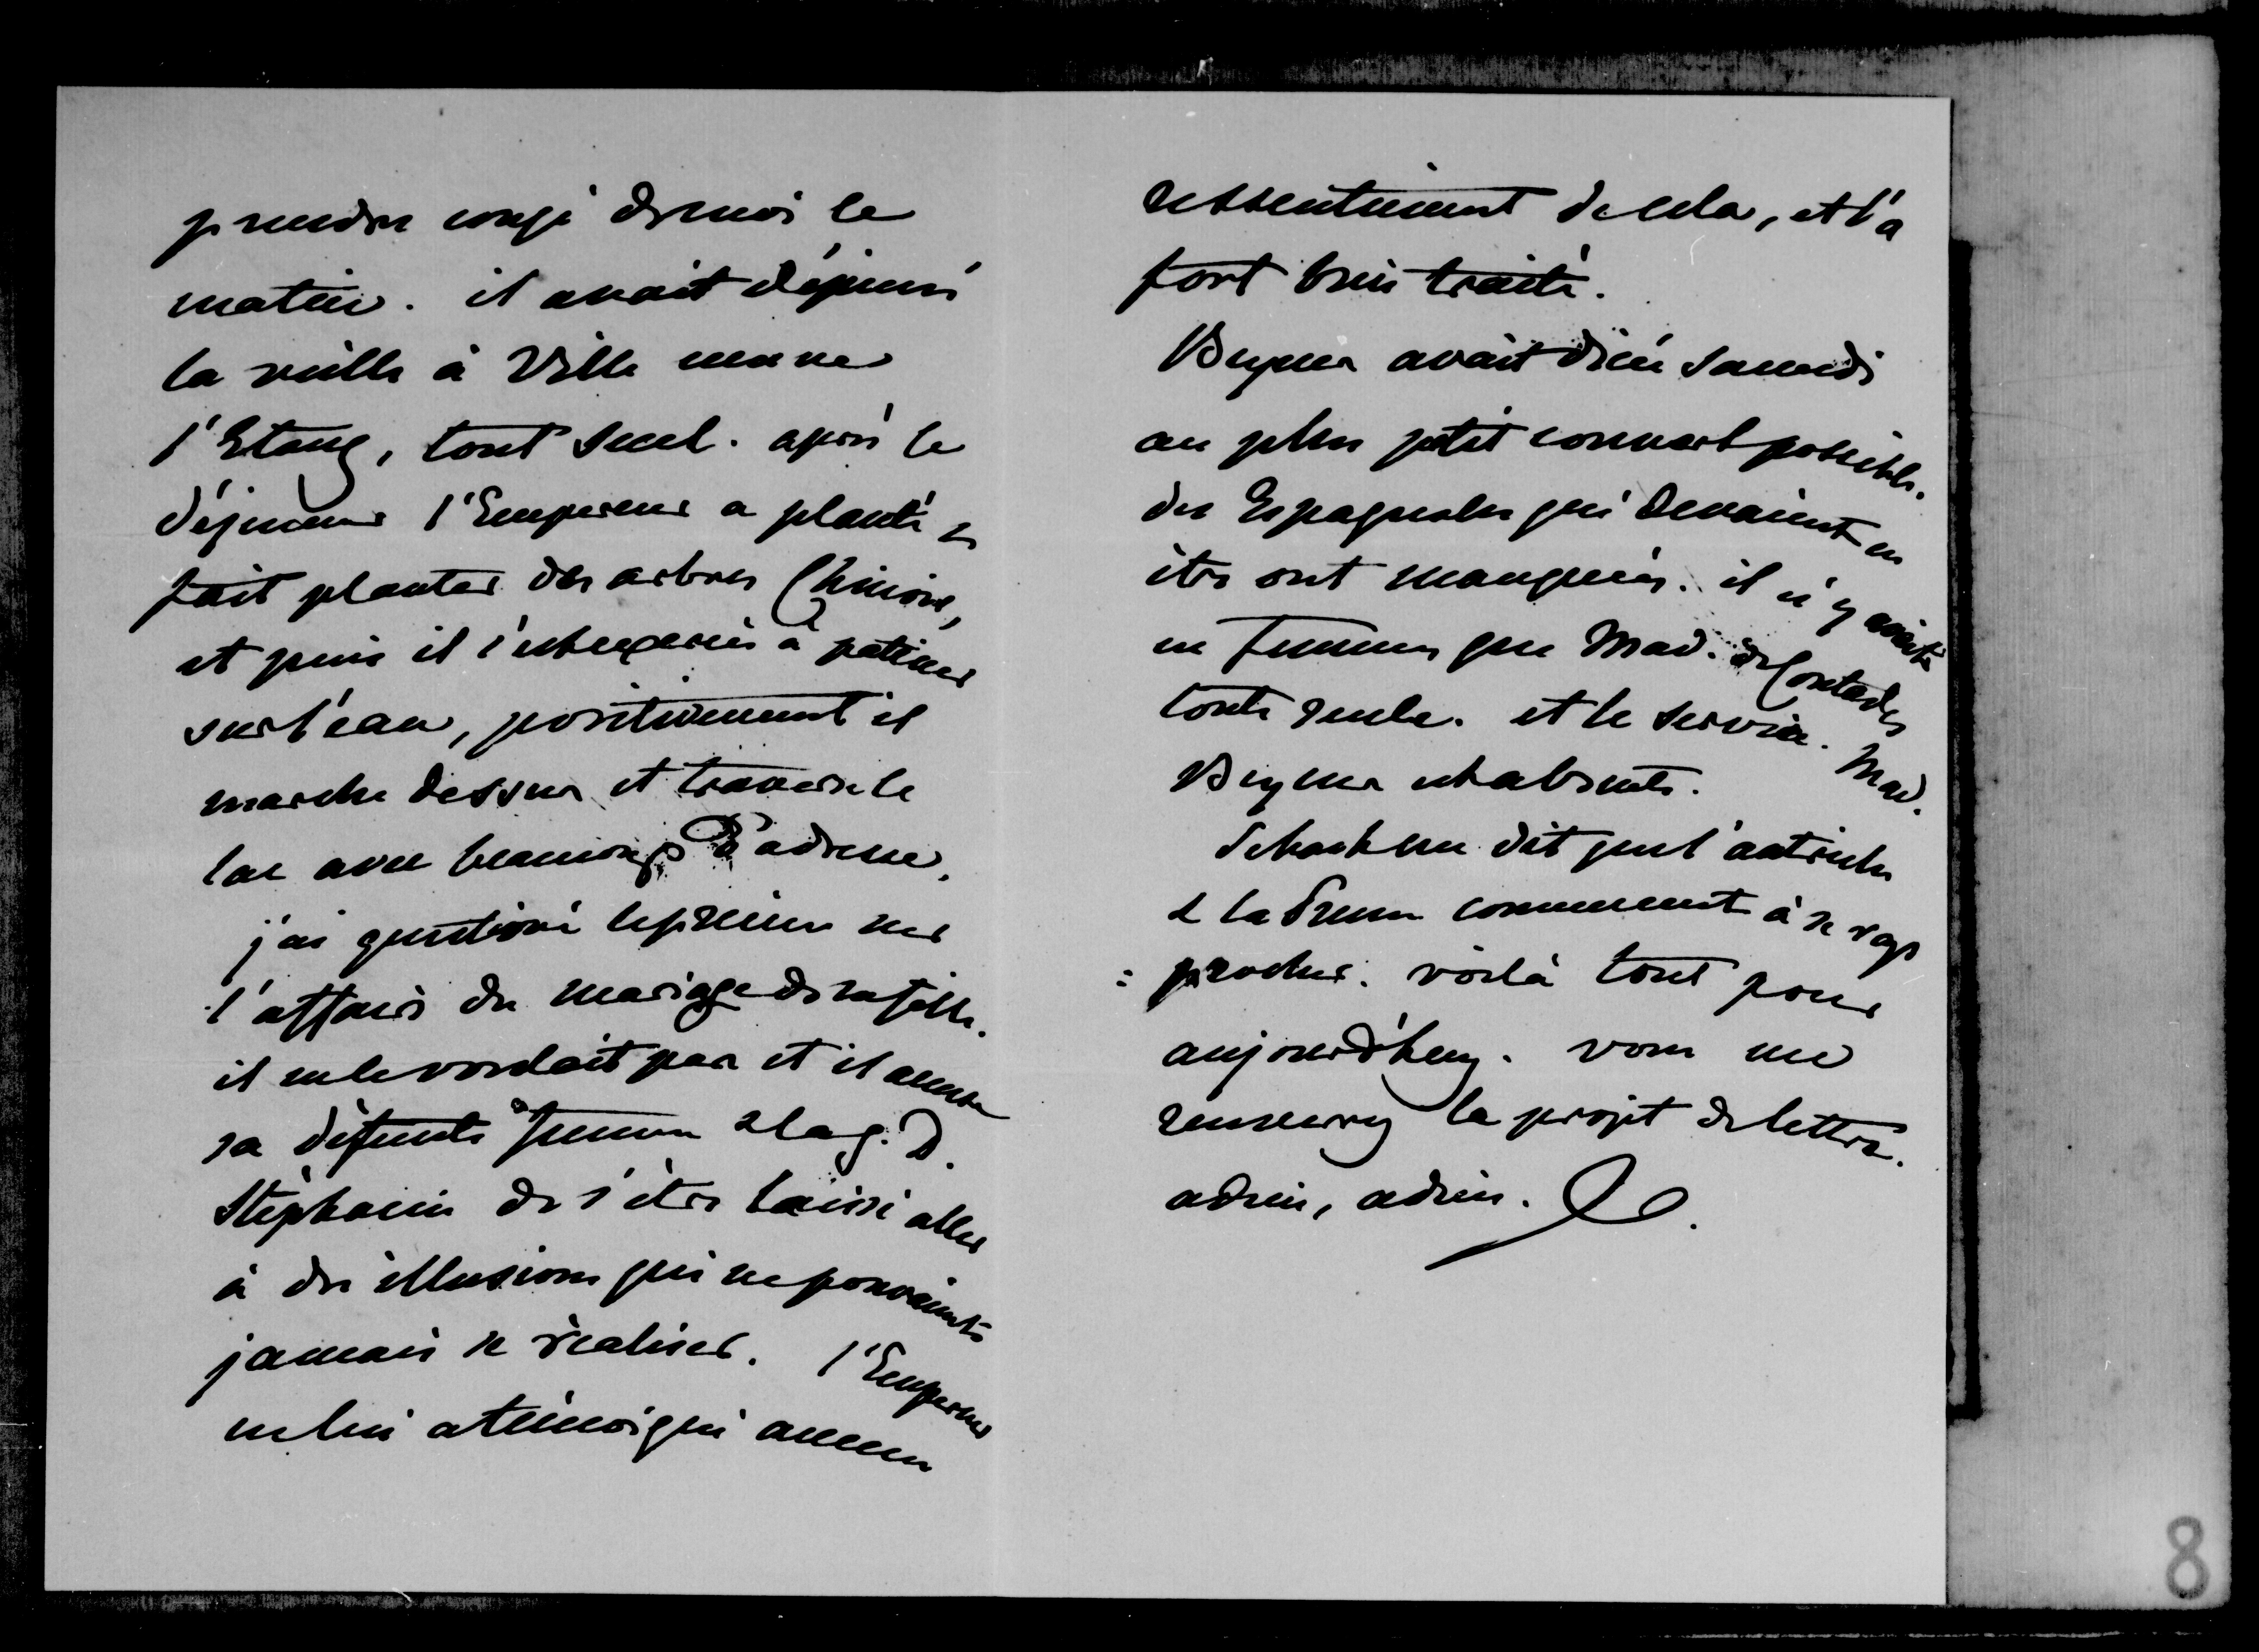 prendre congé de moi le
matin. il avait déjeuné
la veille à Ville neuve
l'Etang, tout seul. après le
déjeuner l'Empereur a planté &
fait planter des arbres Chinois,
et puis il s'est exercé à patiner
sur l'eau, positivement il
marche dessus et traverse le
lac avec beaucoup d'adresse.
j'ai questioné le prince sur
l'affaire du mariage de sa fille.
il ne le voulait pas et il accuse
sa défunte femme & la g. D.
Stéphanie de s'être laissé aller
à des illusions qui ne pouvaient
jamais se réaliser. l'Empereur
ne lui a témoigné aucun
ressentiment de cela, et l'a
fort bien traité.
avait diné samedi
au plus petit couvert possible.
des Espagnoles qui devaient en
être ont manqué. il n'y avait
en femmes que Mad. de Contades
toute seule. et le service. Mad.
est absente.
me dit que l'autriche
& la Prusse commencent à se rap
: procher. voilà tout pour
aujourd'huy. vous me
renverrez le projet de lettre.
adieu, adieu.
8